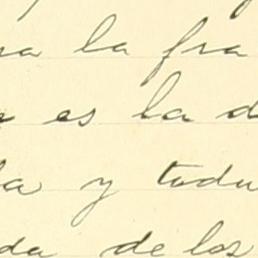 ra la fra
es la d
la y todu
da de los